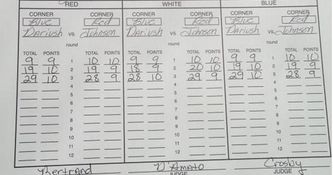 RED WHITE BLUE
CORNER CORNER CORNER CORNER CORNER CORNER
Blue Red Blue Red Blue Red
Dariush vs Johnson Dariush vs Johnson Dariush vs Johnson
round round round
TOTAL POINTS POINTS TOTAL TOTAL POINTS POINTS TOTAL TOTAL POINTS POINTS TOTAL
9 9 1 10 10 9 9 1 10 10 9 9 1 10 10
19 10 2 9 19 18 9 2 10 20 19 10 2 9 19
29 10 3 9 28 28 10 3 9 29 29 10 3 9 28
4 4 4
5 5 5
6 6 6
7 7 7
8 8 8
9 9 9
10 10 10
11 11 11
12 12 12
Bertrand D'Amato Crosby
JUDGE JUDGE